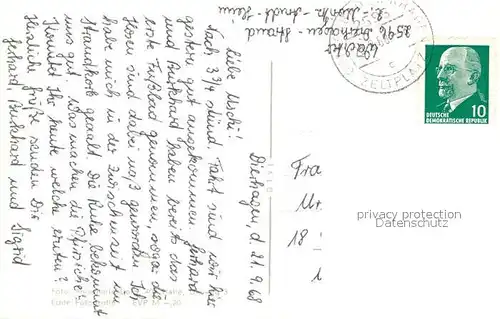 Liebe Uschi!
Nach 3 3/4 stünd. Fahrt sind wir hier
gestern gut angekommen. Gerhard
und Burkhard haben bereits das
erste Fußbad genommen, sogar die
Hosen sind dabei naß geworden. Ich
habe mich in der Zwischenzeit im
Strandkorb geaalt. Die Ruhe bekommt
uns gut. Was machen die Pfirsiche?
Konntet Ihr heute welche ernten?
Herzliche Grüße senden Dir
Gerhard, Burkhard und Sigrid
Dierhagen, d. 21.9.68
2596 Dierhagen - Strand
E.-Moritz-Arndt-Heim
ZELTPLATZ
DEUTSCHE
DEMOKRATISCHE REPUBLIK
10
Fra
18
privacy protection
AnsichtskartenVersand.com
Echte Fotografie
EVP